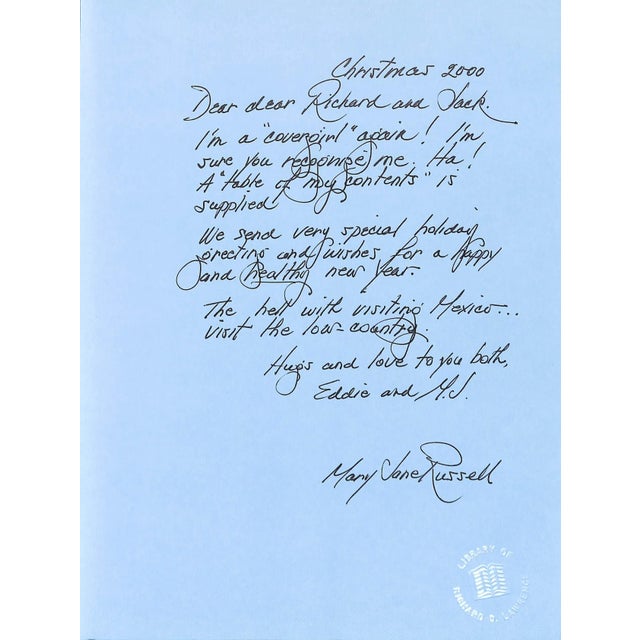 Christmas 2000
Dear dear Richard and Jack.
I'm a "covergirl" again! I'm
sure you recognise me. Ha!
A "table of my contents" is
supplied!
We send very special holiday
greeting and wishes for a happy
and healthy new year.
The hell with visiting Mexico...
visit the low-country.
Hugs and love to you both,
Eddie and M.J.
Mary Jane Russell
LIBRARY OF
RICHARD